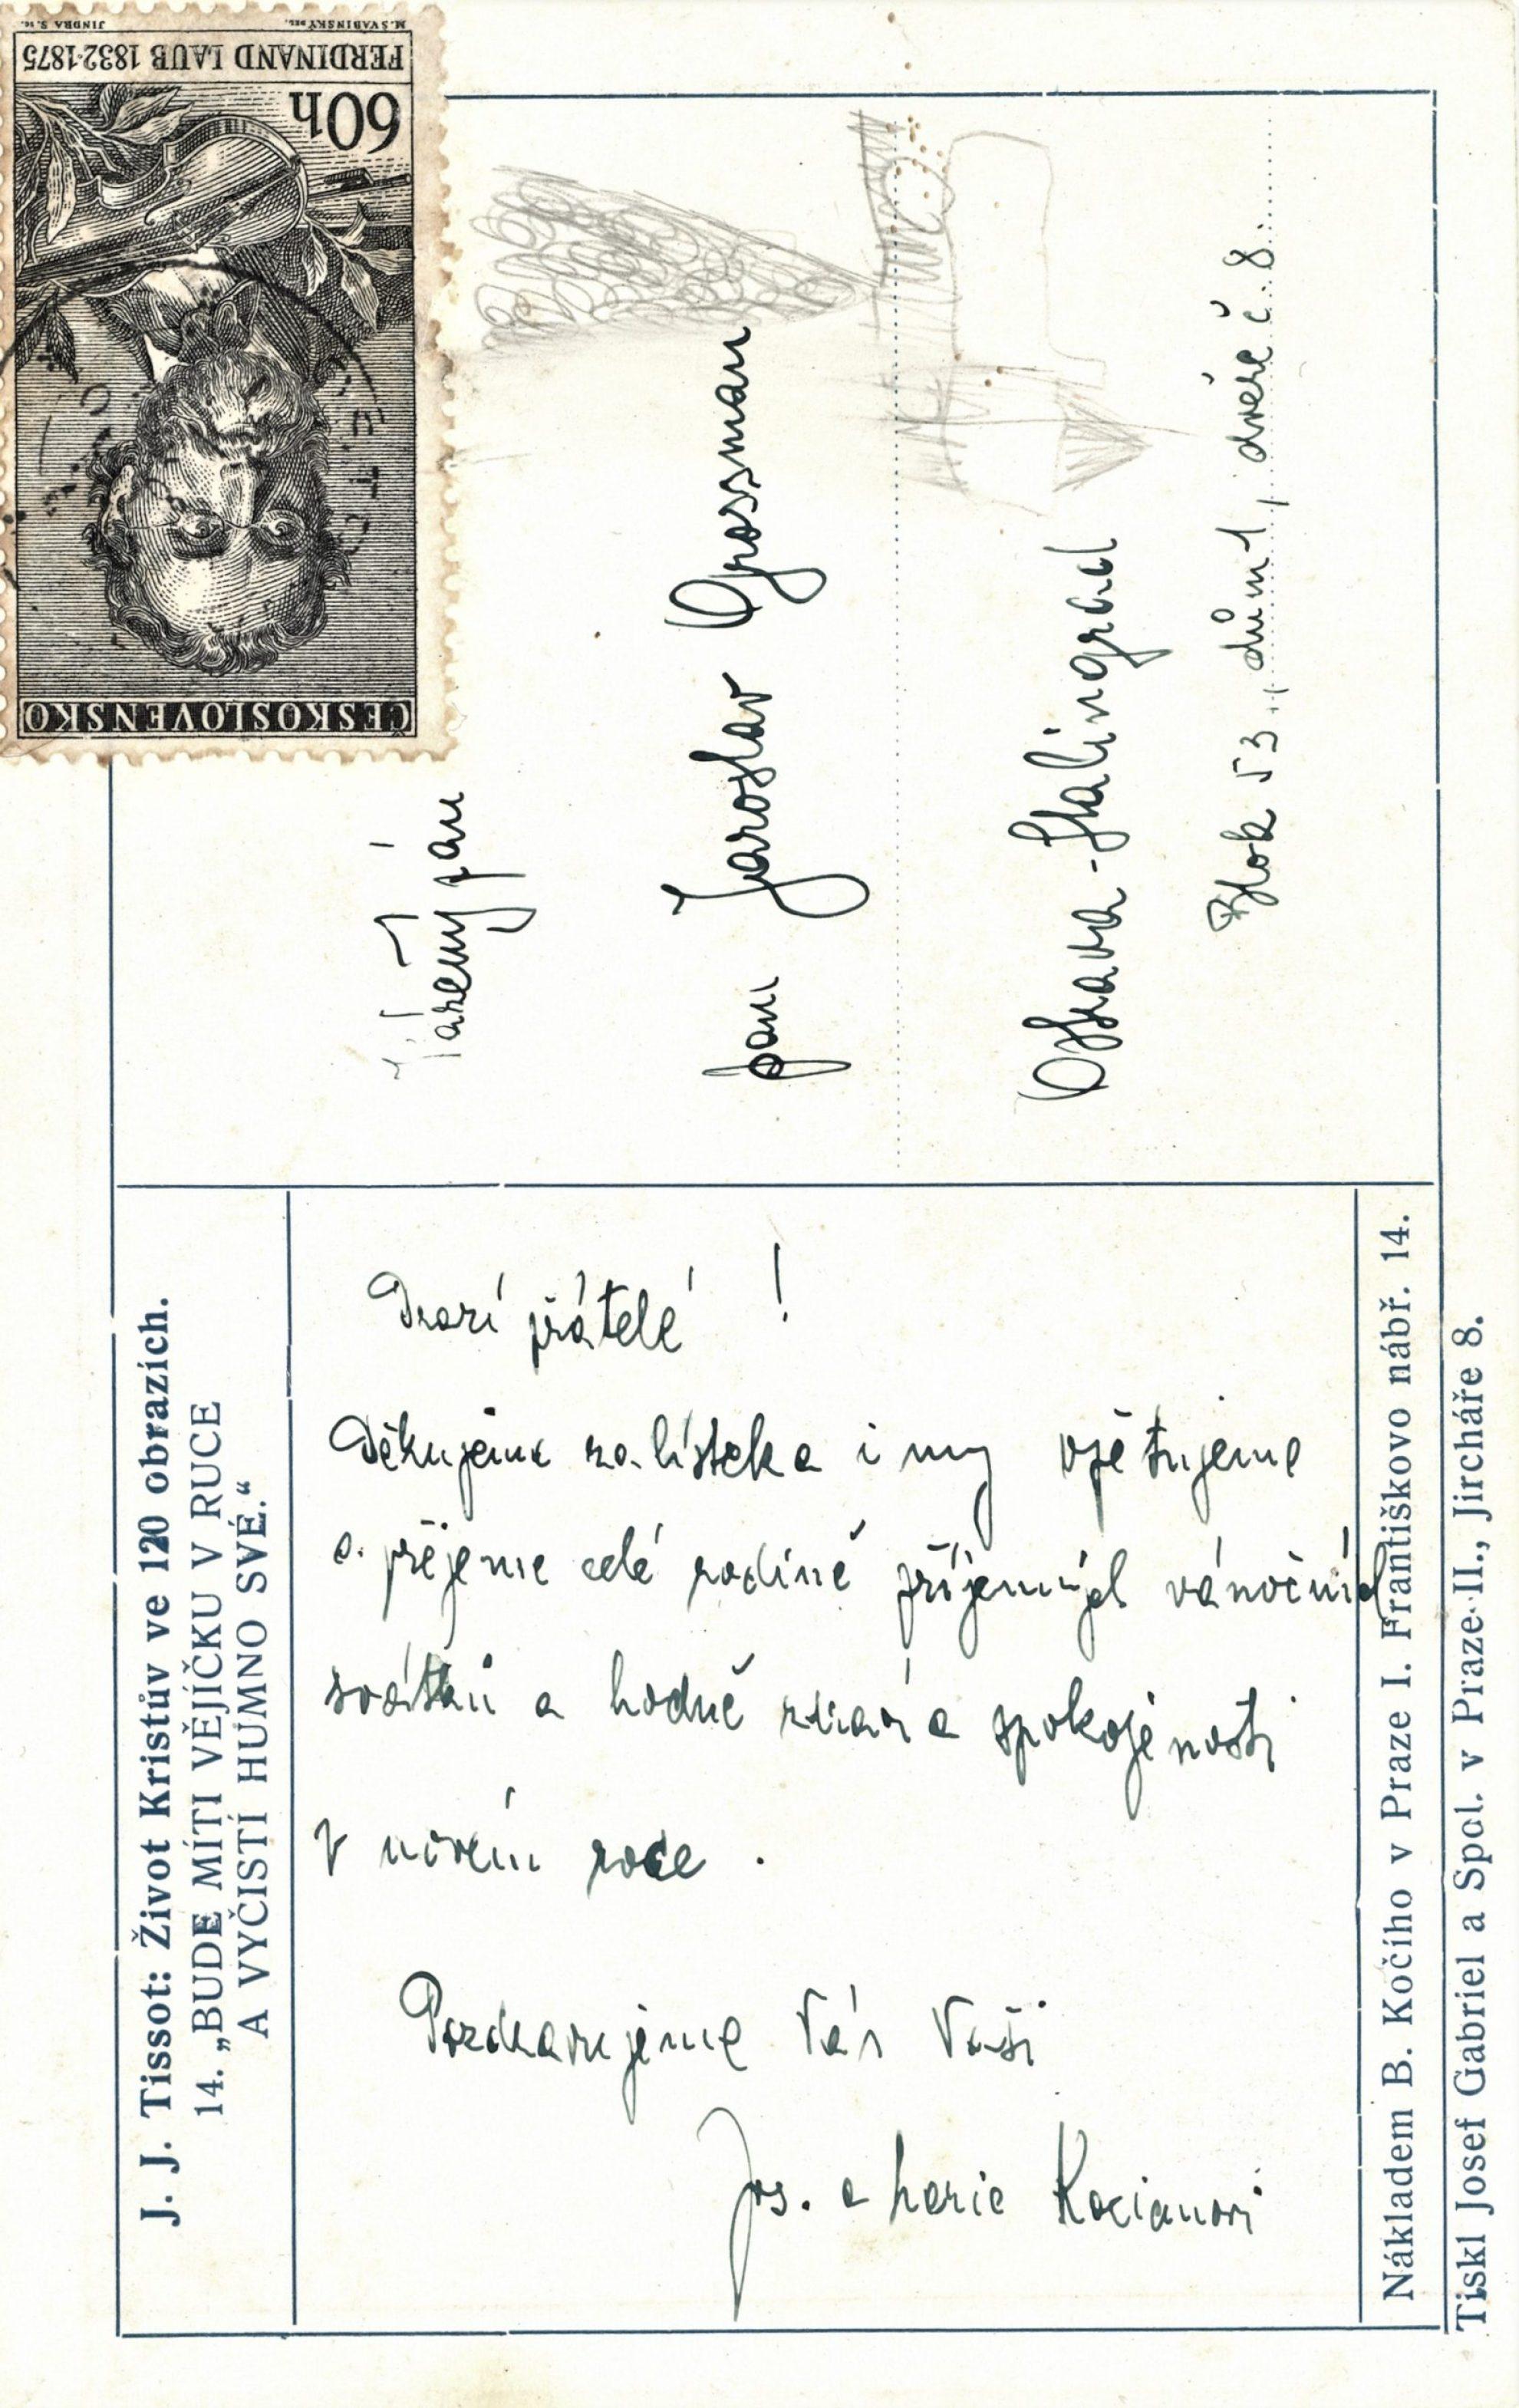 J. J. Tissot: Život Kristův ve 120 obrazích.
14. „BUDE MÍTI VĚJÍČKU V RUCE
A VYČISTÍ HUMNO SVÉ.“
Drazí přátelé !
Děkujeme za lísteka i my vzpětujeme
a přejeme celé rodině příjemných vánočních
svátků a hodně zdraví a spokojenosti
v novém roce .
Pozdravujeme Vás Vaši
Jos. a Marie Kocianovi
Nákladem B. Kočího v Praze I. Františkovo nábř. 14.
Tiskl Josef Gabriel a Spol. v Praze-II., Jircháře 8.
ČESKOSLOVENSKO
60h
FERDINAND LAUB 1832-1875
M. ŠVABINSKÝ DEL.
JINDRA S. SC.
Vážený pán
pan Jaroslav Grossman
Ostrava-Stalingrad
Blok 53., dům 1, dveře č. 8.